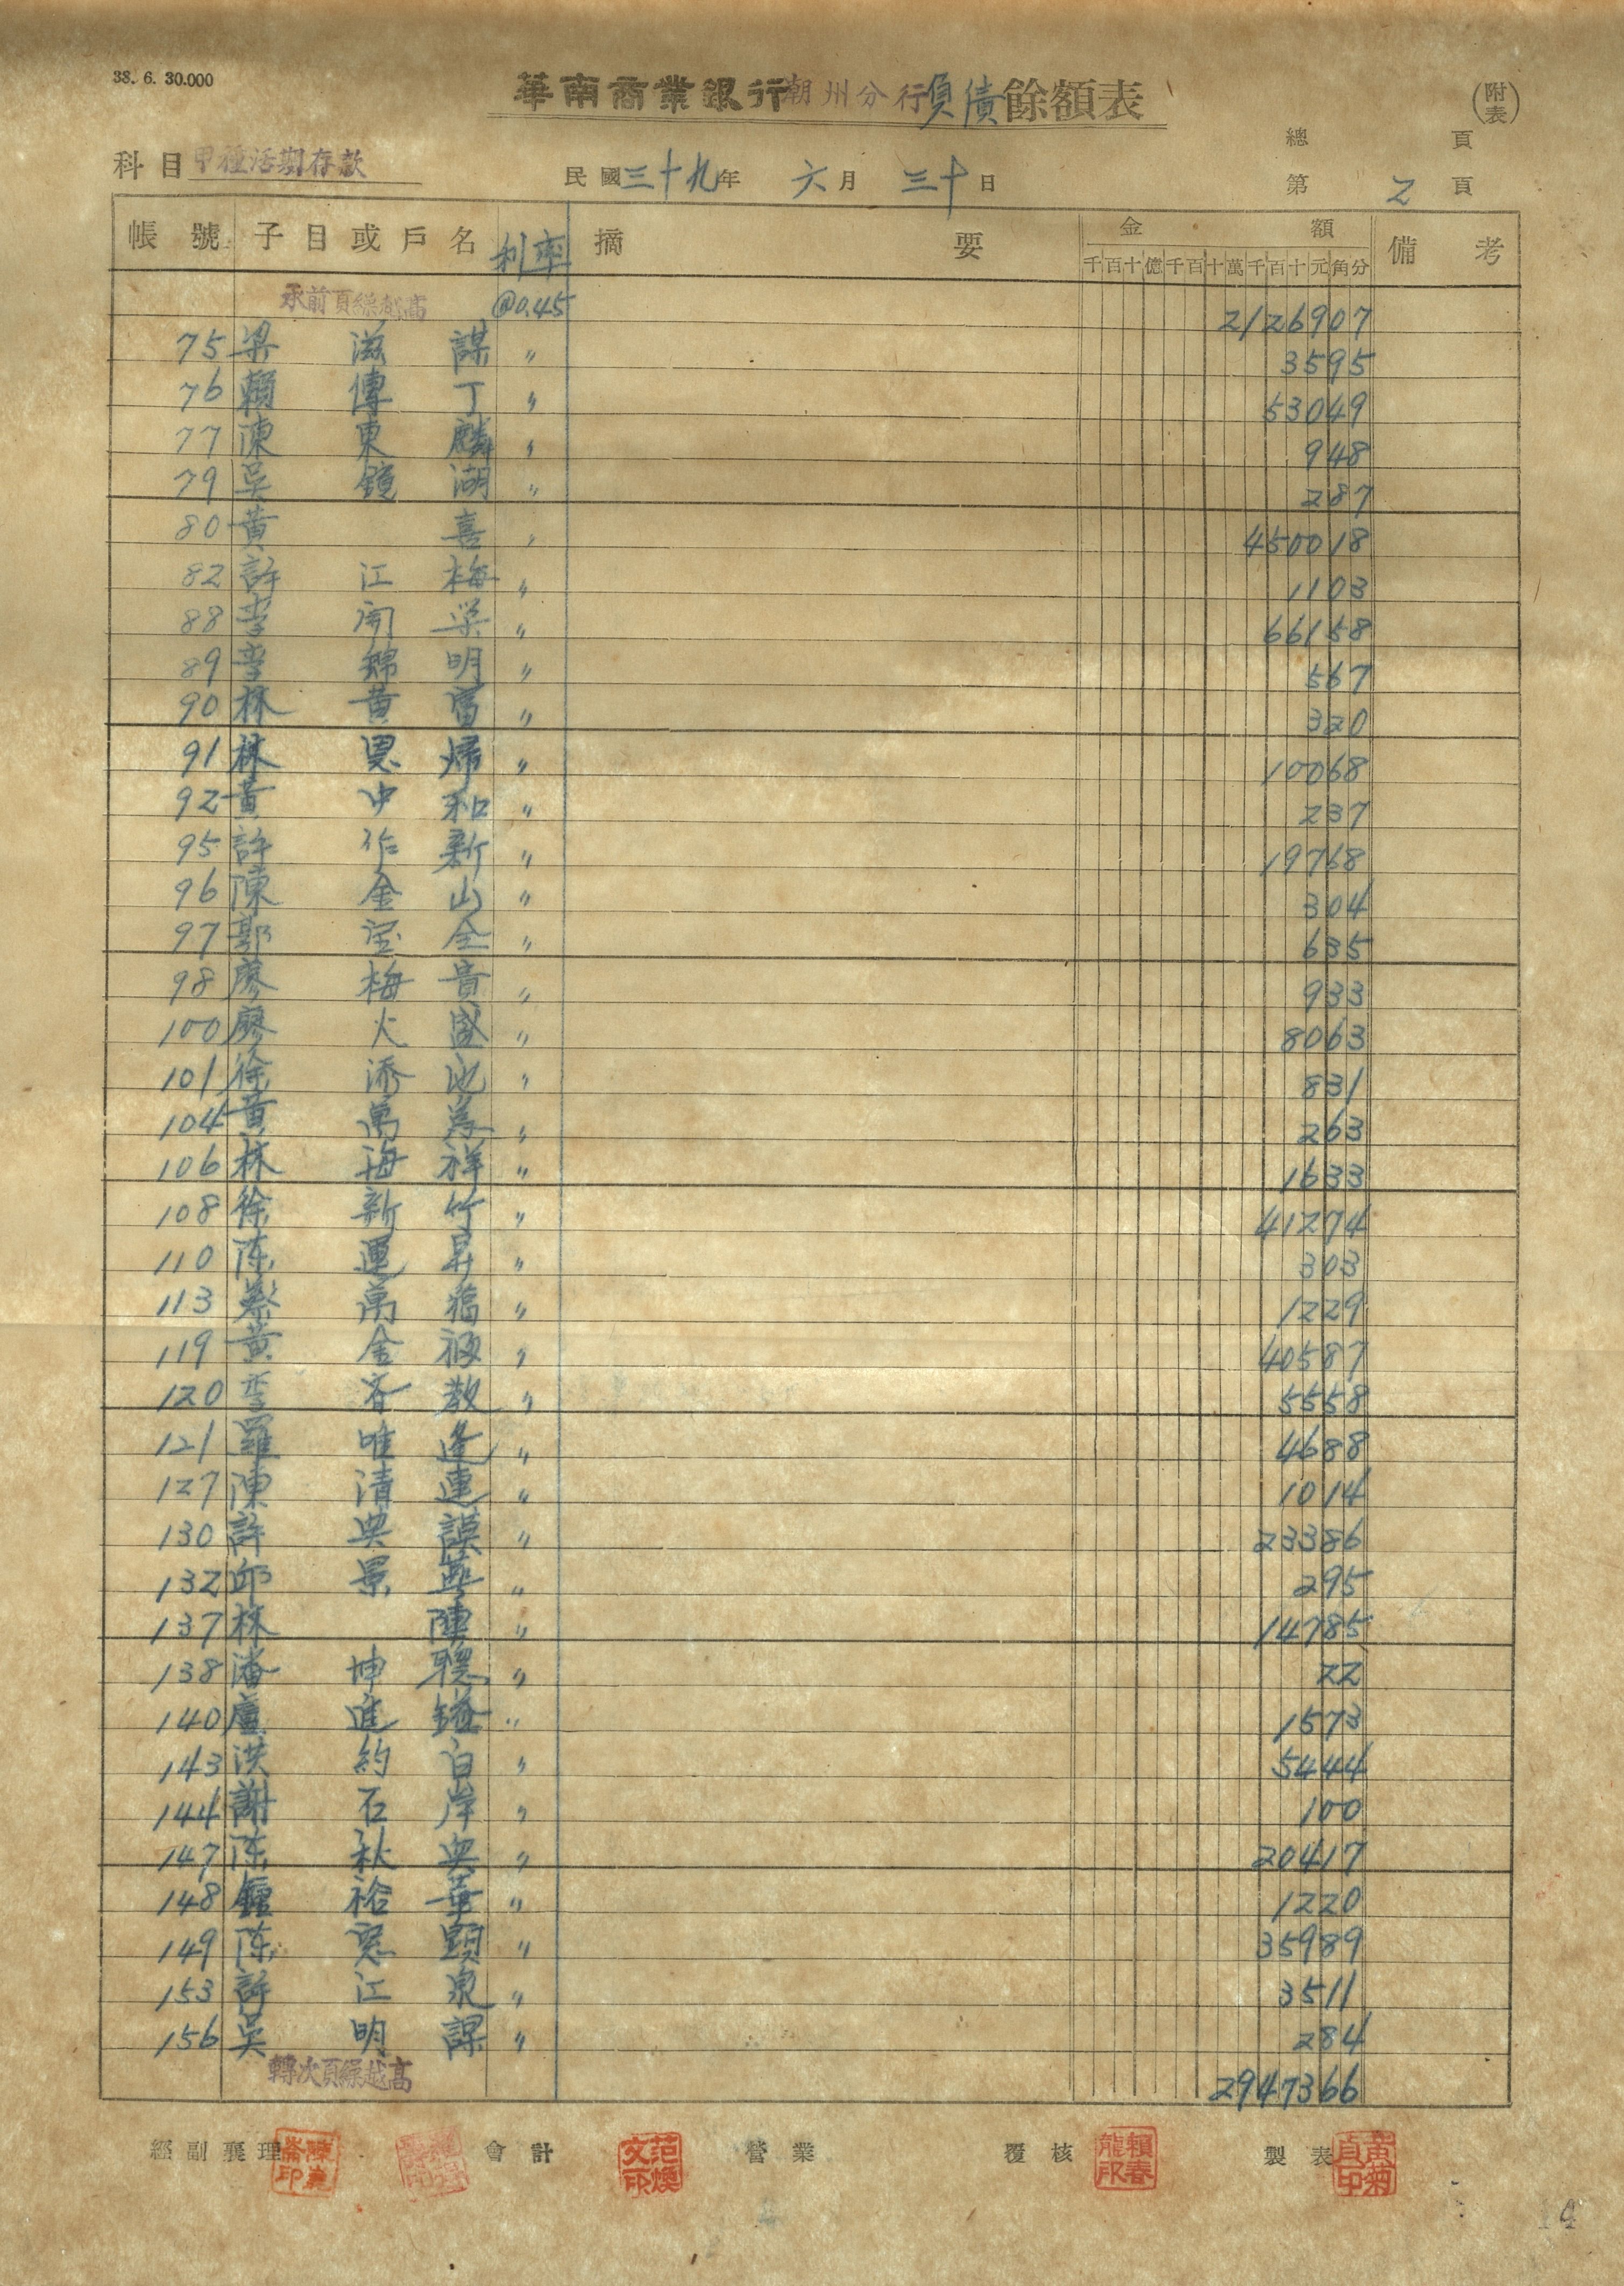 38. 6. 30.000
華南商業銀行潮州分行負債餘額表
(附表)
總 頁
科目 甲種活期存款
民國三十九年 六月 三十日
第 2 頁
帳號 子目或戶名 利率 摘要 金額 備考
千百十億千百十萬千百十元角分
承前頁繰越高 @0.45 2126907
75 梁滋謀 〃 3595
76 賴傳丁 〃 53049
77 陳東麟 〃 948
79 吳鏡湖 〃 287
80 黃喜 〃 450018
82 許江梅 〃 1103
88 李開 〃 66158
89 李錦明 〃 567
90 林黃富 〃 320
91 林恩歸 〃 10068
92 黃中和 〃 237
95 許作新 〃 19768
96 陳金山 〃 304
97 郭宝全 〃 635
98 廖梅貴 〃 933
100 廖火盛 〃 8063
101 徐添池 〃 831
104 黃萬 〃 263
106 林海祥 〃 1633
108 徐新竹 〃 41274
110 陈運昇 〃 303
113 蔡萬福 〃 1229
119 黃金 〃 40587
120 李教 〃 5558
121 羅唯逢 〃 4688
127 陳清連 〃 1014
130 許典謨 〃 23386
132 邱景 〃 295
137 林陣 〃 14785
138 潘坤聰 〃 22
140 盧進鎰 〃 1573
143 洪約白 〃 5444
144 謝石岸 〃 100
147 陈秋典 〃 20417
148 鍾裕華 〃 1220
149 陈顕 〃 35989
153 許江泉 〃 3511
156 吳明謀 〃 284
轉次頁繰越高 2947366
經副襄理 會計 范煥文印 營業 覆核 賴春龍印 製表 黃菊貞印